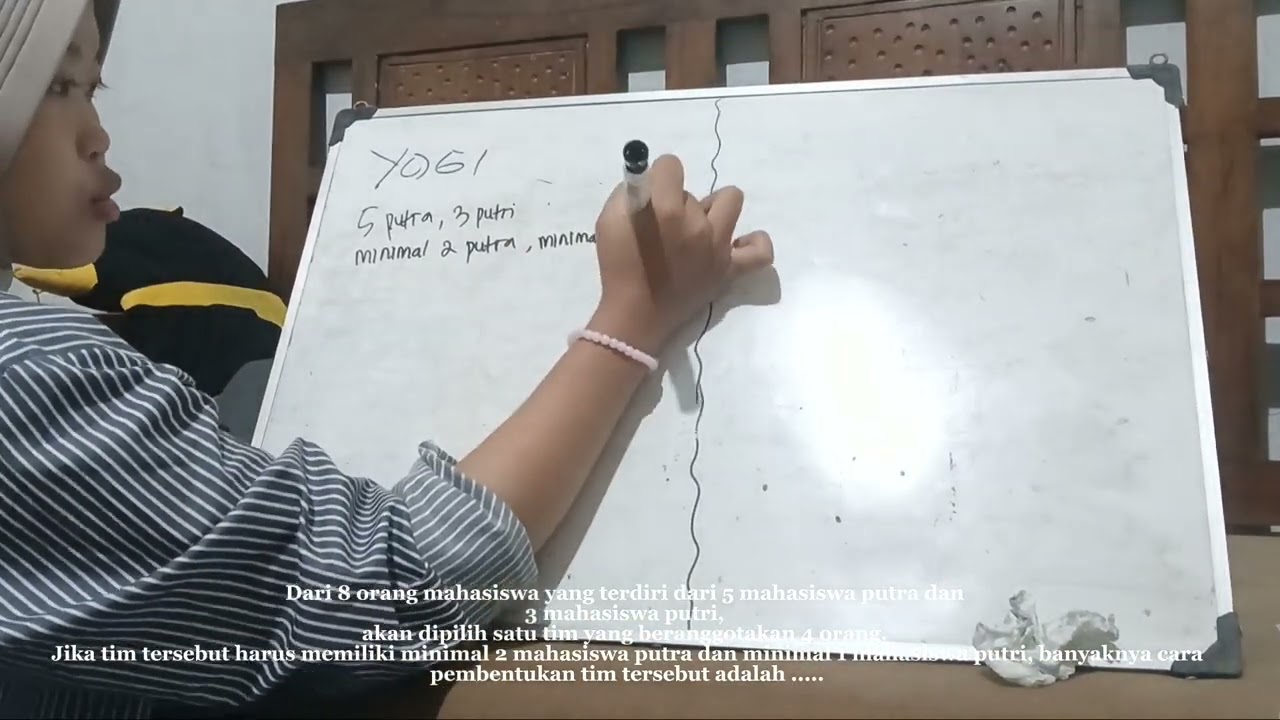 YOGI
5 putra, 3 putri
minimal 2 putra, minima
Dari 8 orang mahasiswa yang terdiri dari 5 mahasiswa putra dan
3 mahasiswa putri,
akan dipilih satu tim yang beranggotakan 4 orang.
Jika tim tersebut harus memiliki minimal 2 mahasiswa putra dan minimal 1 mahasiswa putri, banyaknya cara
pembentukan tim tersebut adalah .....